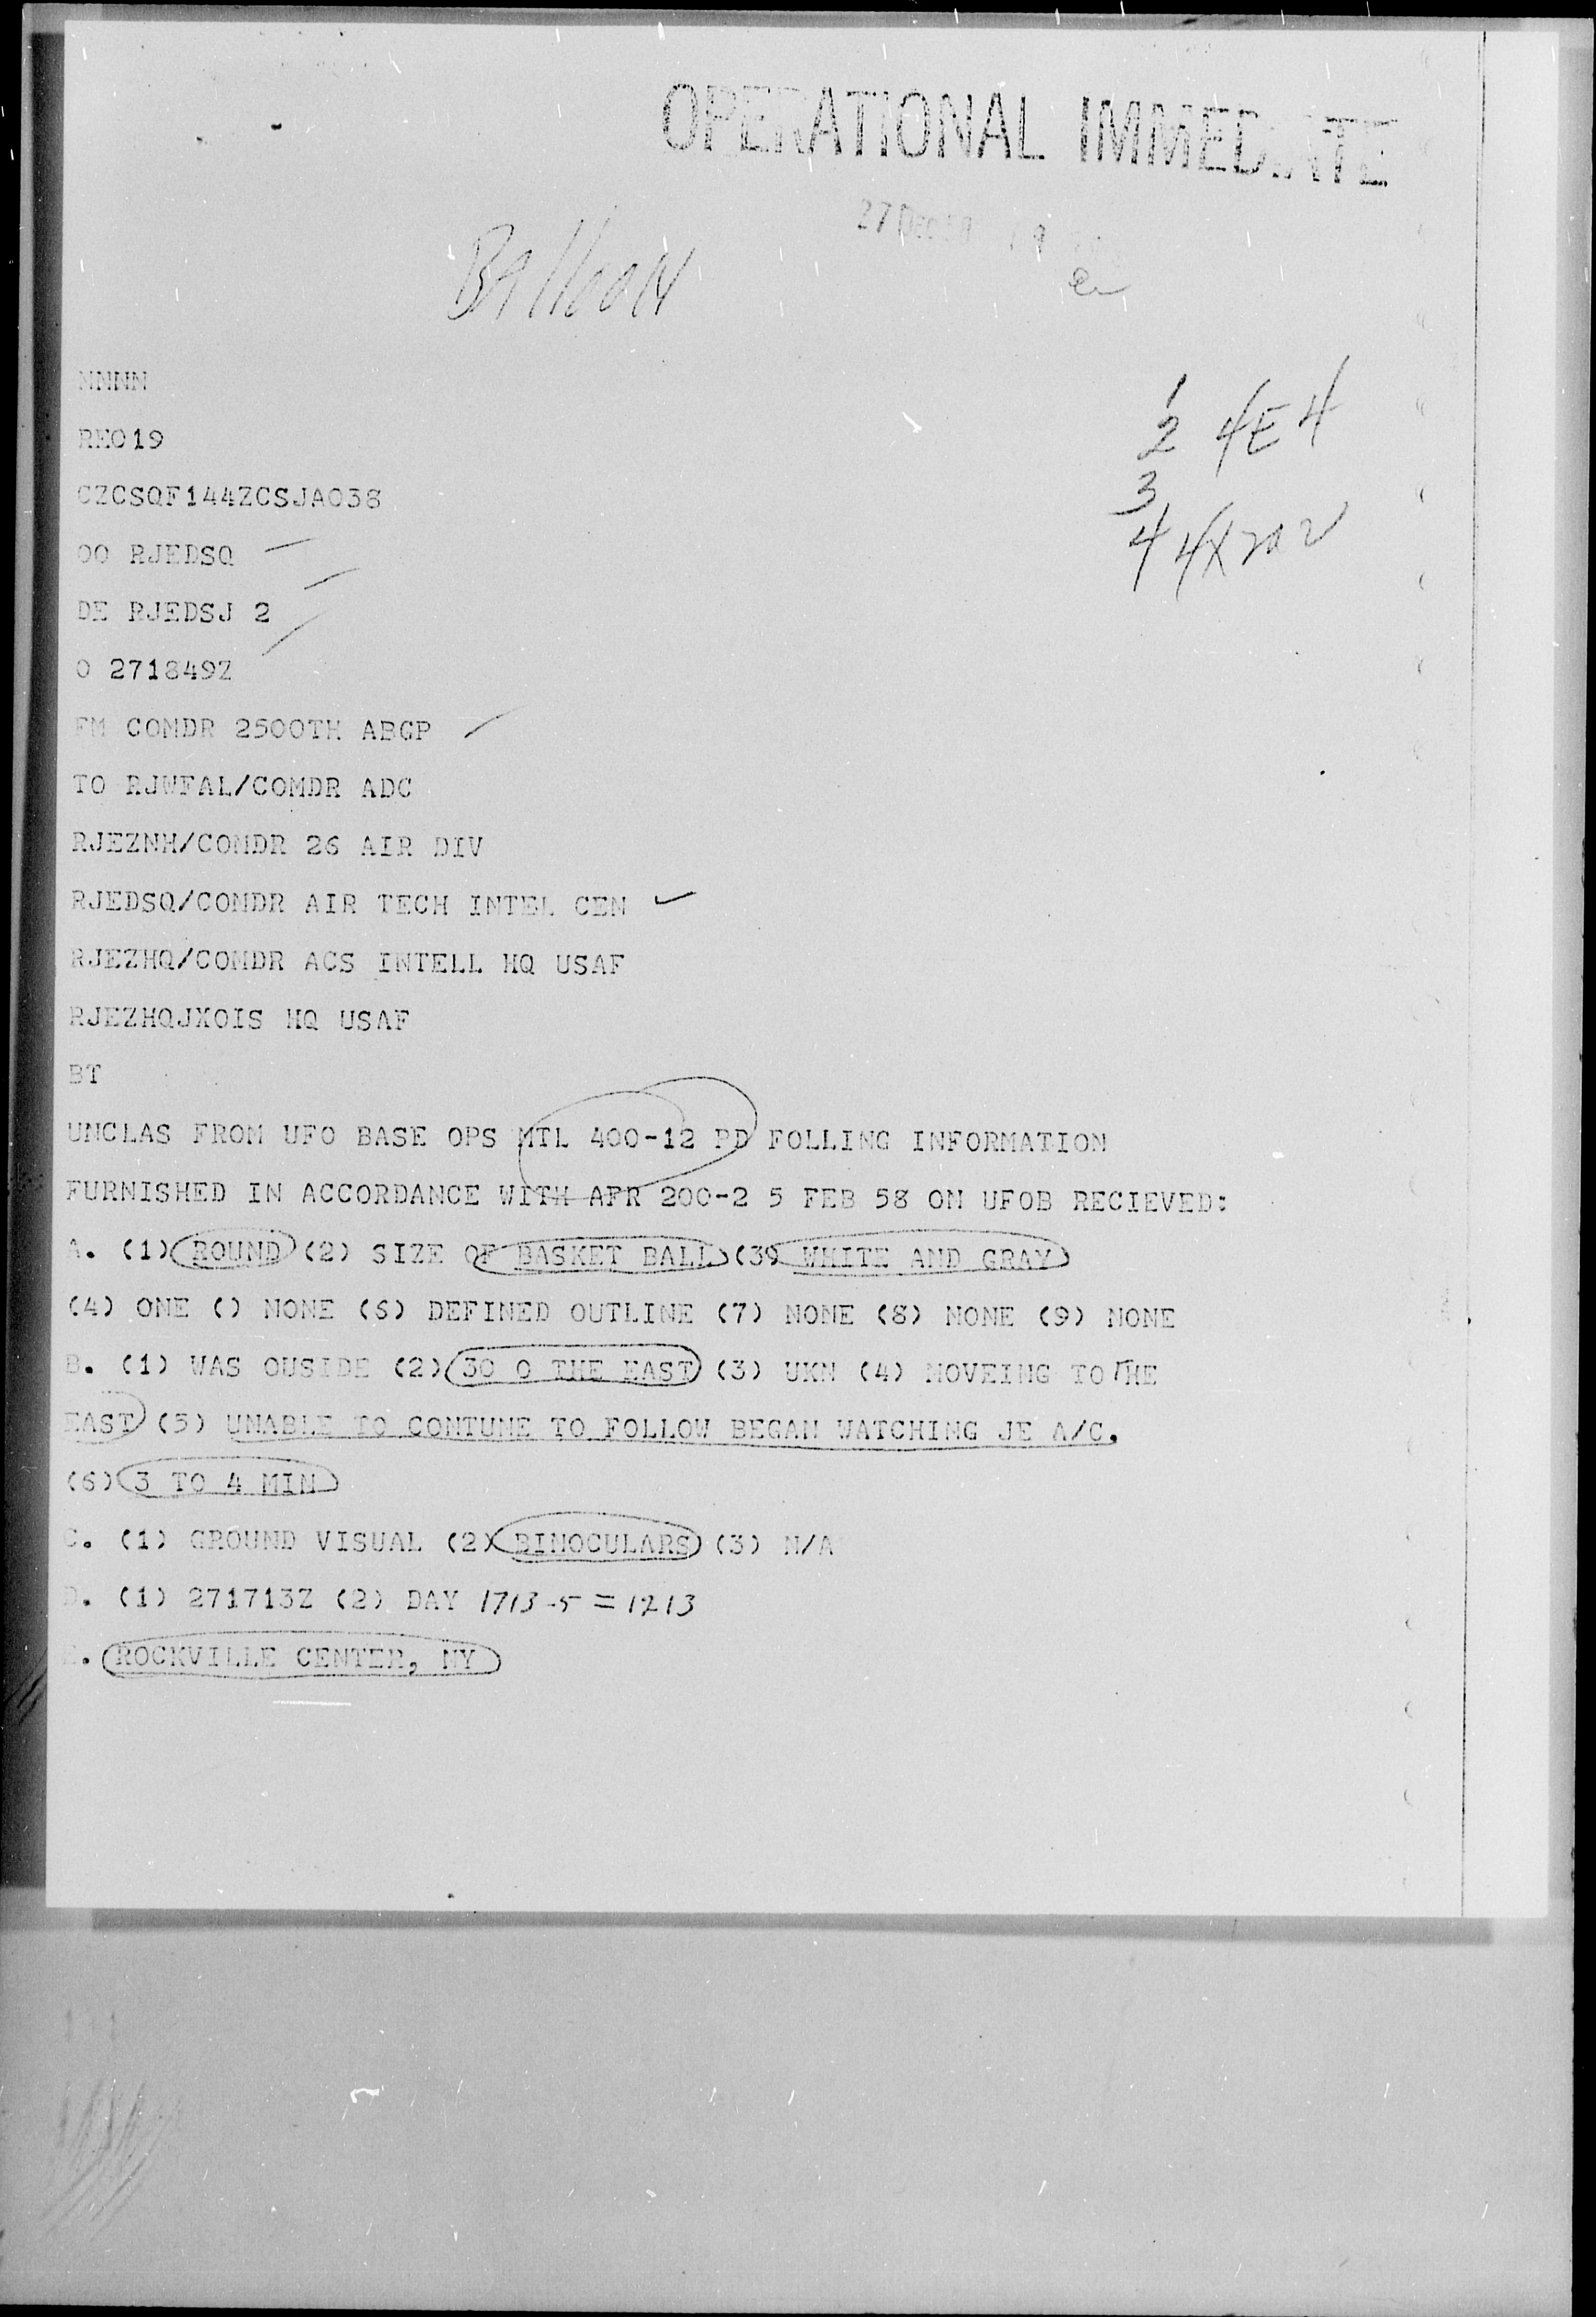 OPERATIONAL IMMEDIATE
27 DEC 58 19
Balloon
NNNN
1
2 4E4
REO19
3
CZCSQF144ZCSJA038
4 4X
OO RJEDSQ
DE RJEDSJ 2
O 271849Z
FM COMDR 2500TH ABGP
TO RJWFAL/COMDR ADC
RJEZNH/COMDR 26 AIR DIV
RJEDSQ/COMDR AIR TECH INTEL CEN
RJEZHQ/COMDR ACS INTELL HQ USAF
RJEZHQJXOIS HQ USAF
BT
UNCLAS FROM UFO BASE OPS MTL 400-12 PD FOLLING INFORMATION
FURNISHED IN ACCORDANCE WITH AFR 200-2 5 FEB 58 ON UFOB RECIEVED:
A. (1) ROUND (2) SIZE OF BASKET BALL (39 WHITE AND GRAY
(4) ONE () NONE (6) DEFINED OUTLINE (7) NONE (8) NONE (9) NONE
B. (1) WAS OUSIDE (2) 30 O THE EAST (3) UKN (4) MOVEING TO THE
EAST (5) UNABLE TO CONTUNE TO FOLLOW BEGAN WATCHING JE A/C.
(6) 3 TO 4 MIN
C. (1) GROUND VISUAL (2) BINOCULARS (3) N/A
D. (1) 271713Z (2) DAY 1713-5 = 1213
E. ROCKVILLE CENTER, NY